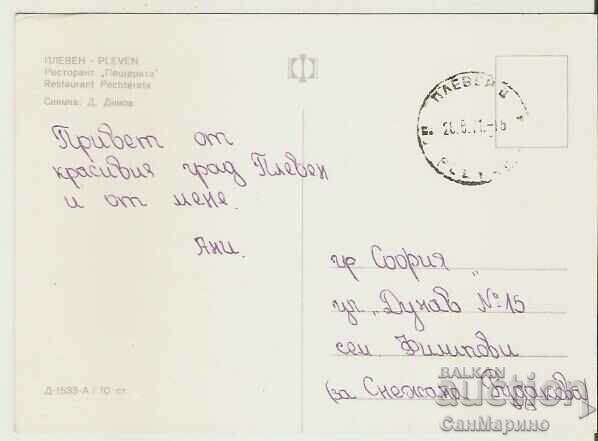 ПЛЕВЕН - PLEVEN
Ресторант „Пещерата"
Restaurant Pechterata
Снимка: Д. Димов
Привет от
красивия град Плевен
и от мене.
Ани.
ПЛЕВЕН
гр София
ул „Дунав" №15
сем Филипови
(за Снежана
Д-1533-А / 10 ст.
BALKAN
auction
СанМарино